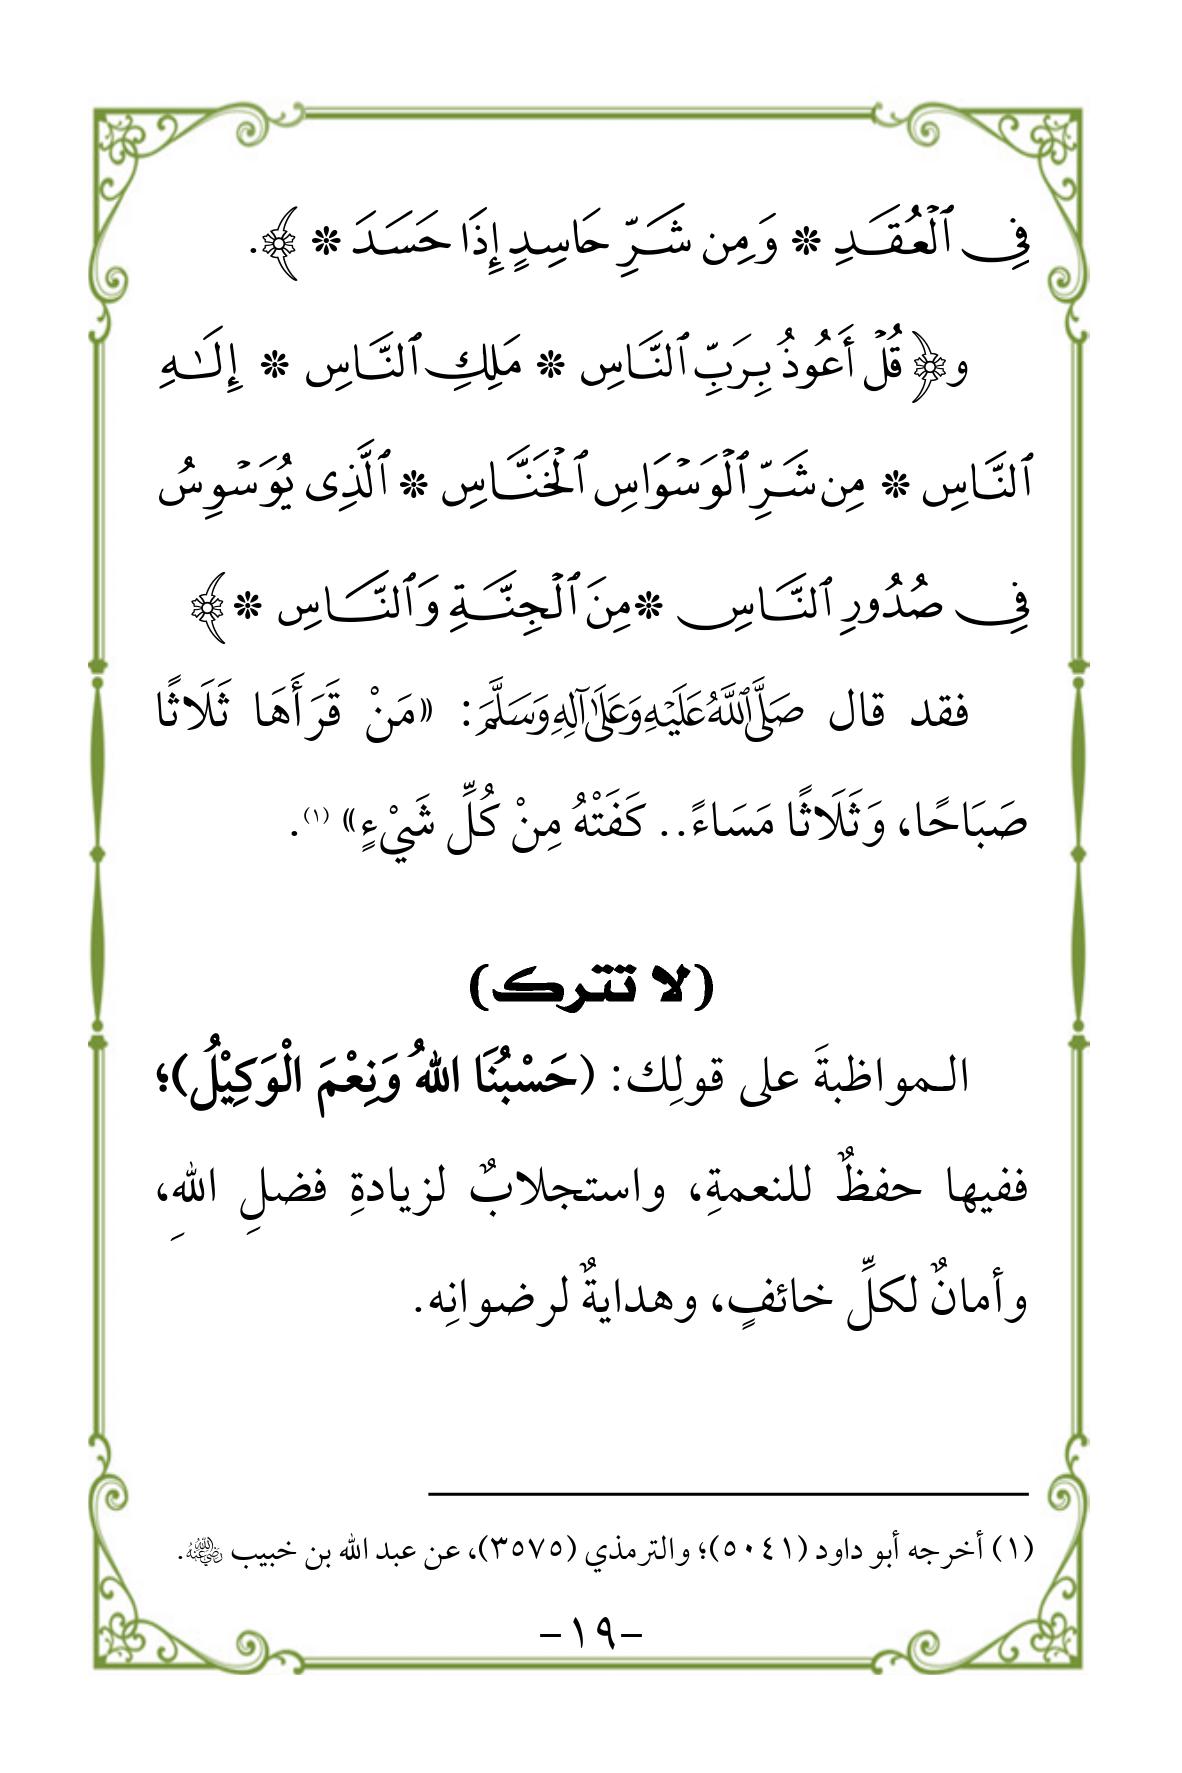 فِى ٱلْعُقَدِ * وَمِن شَرِّ حَاسِدٍ إِذَا حَسَدَ * ﴾.
و﴿قُلْ أَعُوذُ بِرَبِّ ٱلنَّاسِ * مَلِكِ ٱلنَّاسِ * إِلَـٰهِ
ٱلنَّاسِ * مِن شَرِّ ٱلْوَسْوَاسِ ٱلْخَنَّاسِ * ٱلَّذِى يُوَسْوِسُ
فِى صُدُورِ ٱلنَّاسِ *مِنَ ٱلْجِنَّةِ وَٱلنَّاسِ *﴾
فقد قال صَلَّى ٱللَّهُ عَلَيْهِ وَعَلَىٰ آلِهِ وَسَلَّمَ: «مَنْ قَرَأَهَا ثَلَاثًا
صَبَاحًا، وَثَلَاثًا مَسَاءً.. كَفَتْهُ مِنْ كُلِّ شَيْءٍ» (١).
(لا تترك)
الـمواظبةَ على قولِك: (حَسْبُنَا اللهُ وَنِعْمَ الْوَكِيْلُ)؛
ففيها حفظٌ للنعمةِ، واستجلابٌ لزيادةِ فضلِ اللهِ،
وأمانٌ لكلِّ خائفٍ، وهدايةٌ لرضوانِه.
(١) أخرجه أبو داود (٥٠٤١)؛ والترمذي (٣٥٧٥)، عن عبد الله بن خبيب رضي الله عنه.
-١٩-